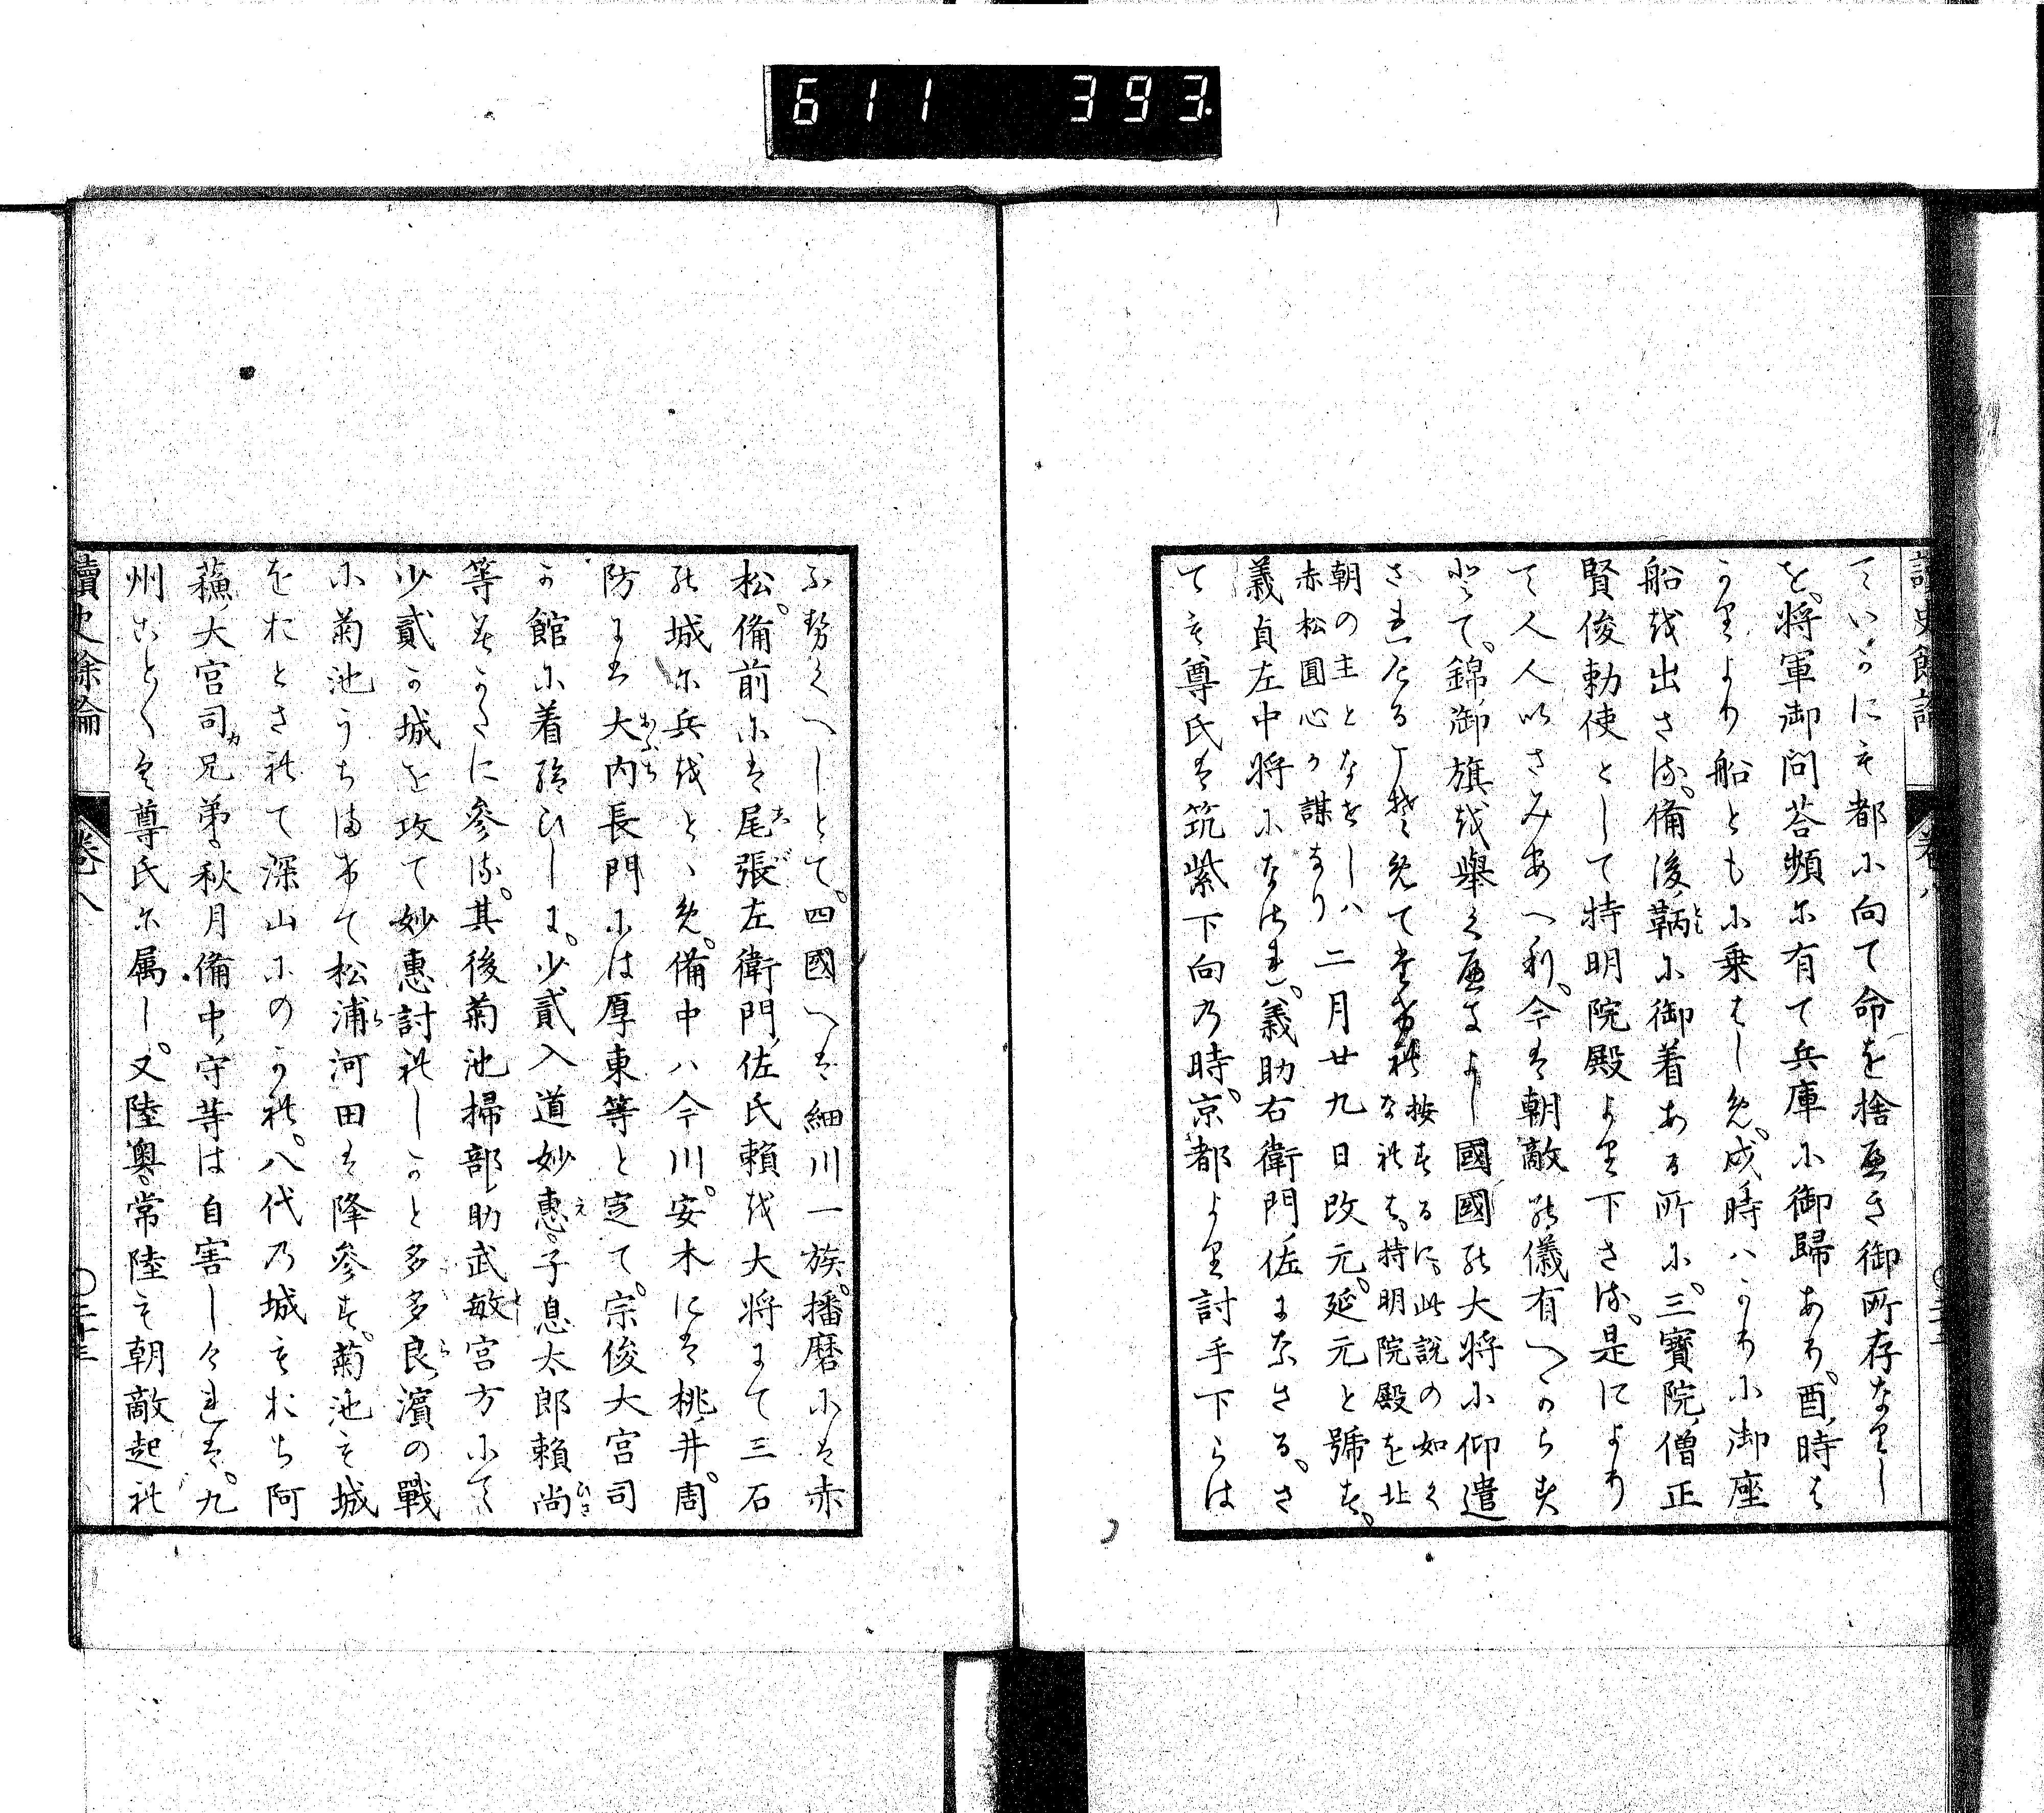 611 393.
讀史餘論 卷八
ていかにも都に向て命を捨へき御所存なりし
を。将軍御問荅頻に有て兵庫に御歸あり。酉ノ時は
かりより船ともに乗はしめ。戌ノ時ハかりに御座
船を出さる。備後ノ鞆に御着ある所に。三寳院ノ僧正
賢俊勅使として持明院殿より下さる。是により
て人人いさみあへり。今は朝敵の儀有へからす
とて。錦ノ御旗を舉くへきよし國國の大将に仰遣
されける
按するに。此説の如く
なれは。持明院殿を北
朝の主となせしハ
赤松圓心か謀なり
二月廿九日改元。延元と號す。
義貞左中将になされ。義助右衛門ノ佐になさる。さ
ても尊氏は筑紫下向の時。京都より討手下らは
ふせくへしとて。四國へは細川一族。播磨には赤
松。備前には尾張左衛門ノ佐氏頼を大将にて三石
の城に兵をとゝめ。備中ハ今川。安木には桃ノ井。周
防には大内長門には厚東等と定て。宗俊大宮司
か館に着給ひしに。少貳入道妙惠。子息太郎頼尚
等むかへに参る。其後菊池掃部ノ助武敏宮方にて
少貳か城を攻て妙惠討れしかと多多良ノ濱の戰
に菊池うちまけて松浦河田は降参す。菊池も城
をおとされて深山にのかれ。八代の城もおち阿
蘓ノ大宮司兄弟秋月備中ノ守等は自害しけれは。九
州ことく尊氏に属し。又陸奥常陸も朝敵起れ
讀史餘論 卷八